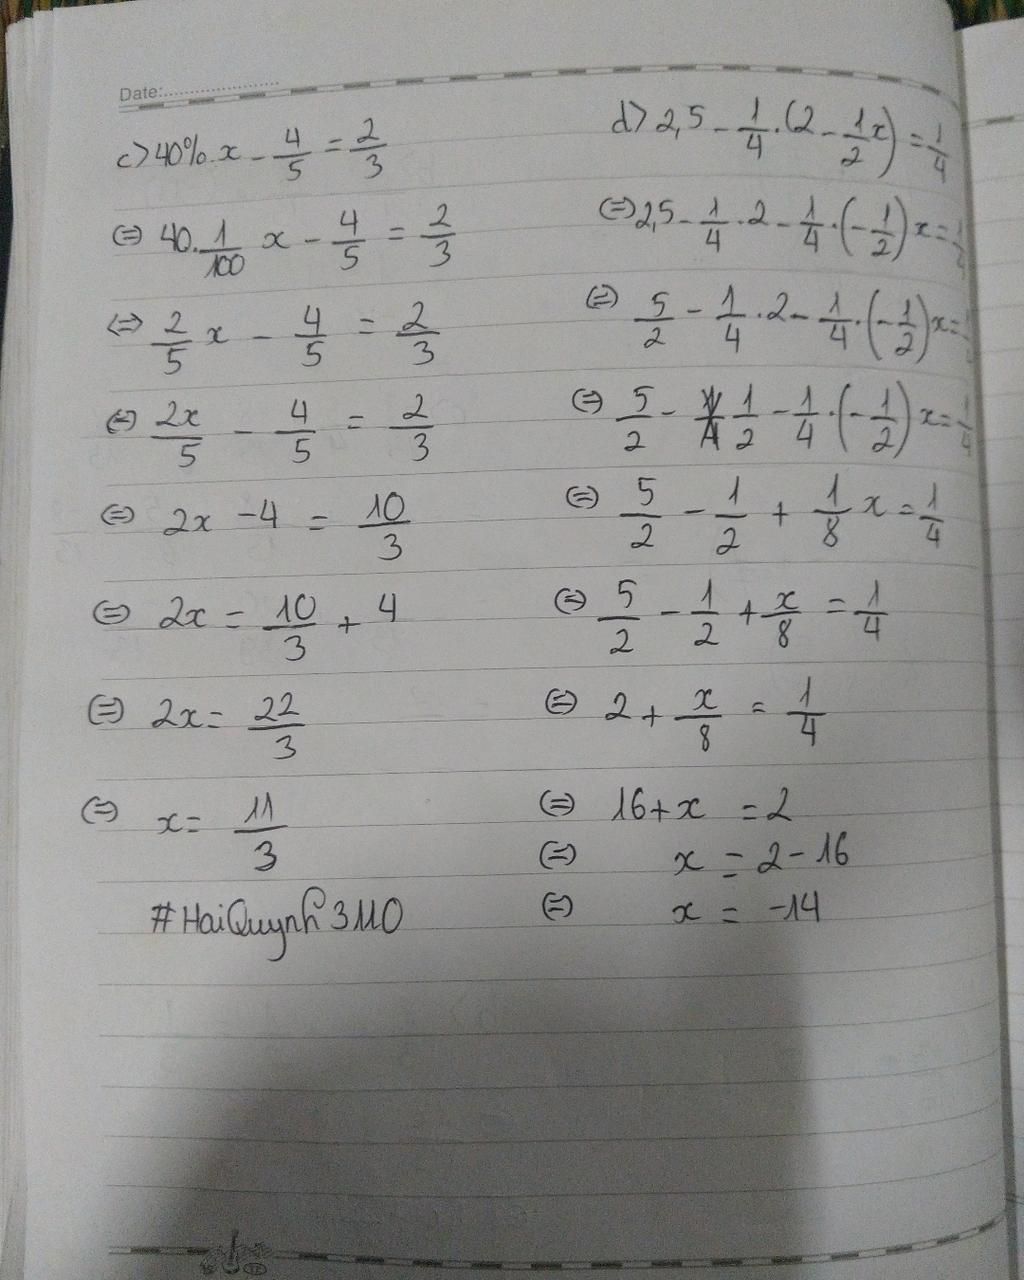 Date:
c) 40%.x - 4/5 = 2/3
(=) 40.1/100 x - 4/5 = 2/3
<=> 2/5 x - 4/5 = 2/3
(=) 2x/5 - 4/5 = 2/3
(=) 2x - 4 = 10/3
(=) 2x = 10/3 + 4
(=) 2x = 22/3
(=) x = 11/3
#HaiQuynh3110
d) 2,5 - 1/4.(2 - 1/2x) = 1/4
(=) 2,5 - 1/4.2 - 1/4.(-1/2)x = 1/4
(=) 5/2 - 1/4.2 - 1/4.(-1/2)x = 1
(=) 5/2 - 1/2 - 1/4.(-1/2)x = 1/4
(=) 5/2 - 1/2 + 1/8 x = 1/4
(=) 5/2 - 1/2 + x/8 = 1/4
(=) 2 + x/8 = 1/4
(=) 16+x = 2
(=) x = 2-16
(=) x = -14